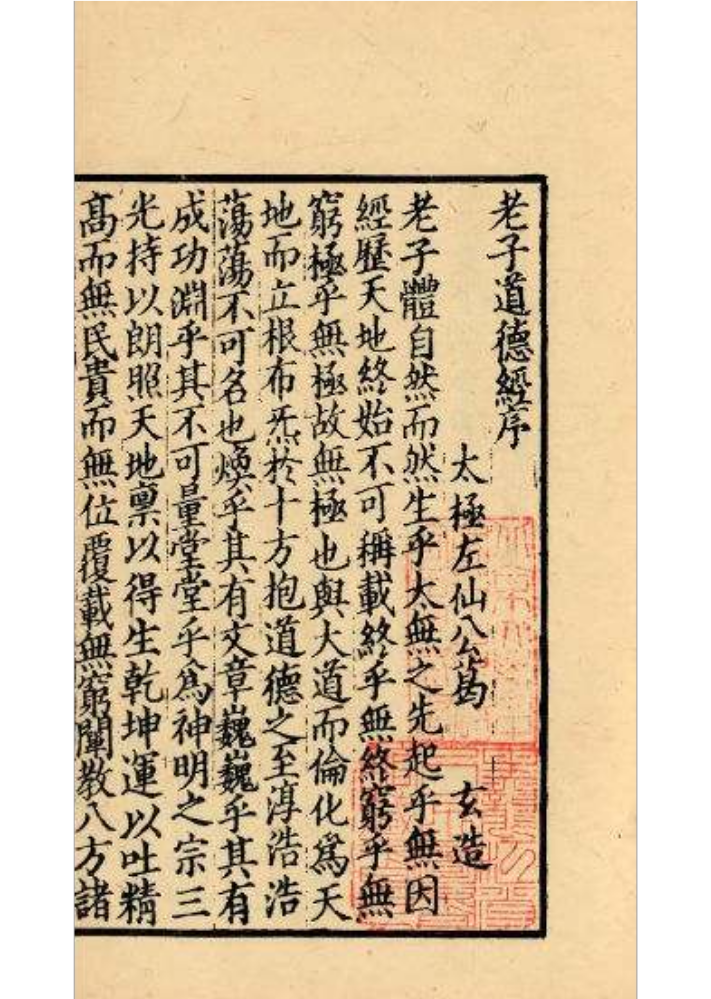 老子道德經序
太極左仙公葛　玄造
老子體自然而然生乎太無之先起乎無因
經歷天地終始不可稱載終乎無終窮乎無
窮極乎無極故無極也與大道而倫化爲天
地而立根布炁於十方抱道德之至淳浩浩
蕩蕩不可名也煥乎其有文章巍巍乎其有
成功淵乎其不可量堂堂乎爲神明之宗三
光持以朗照天地禀以得生乾坤運以吐精
高而無民貴而無位覆載無窮闡教八方諸